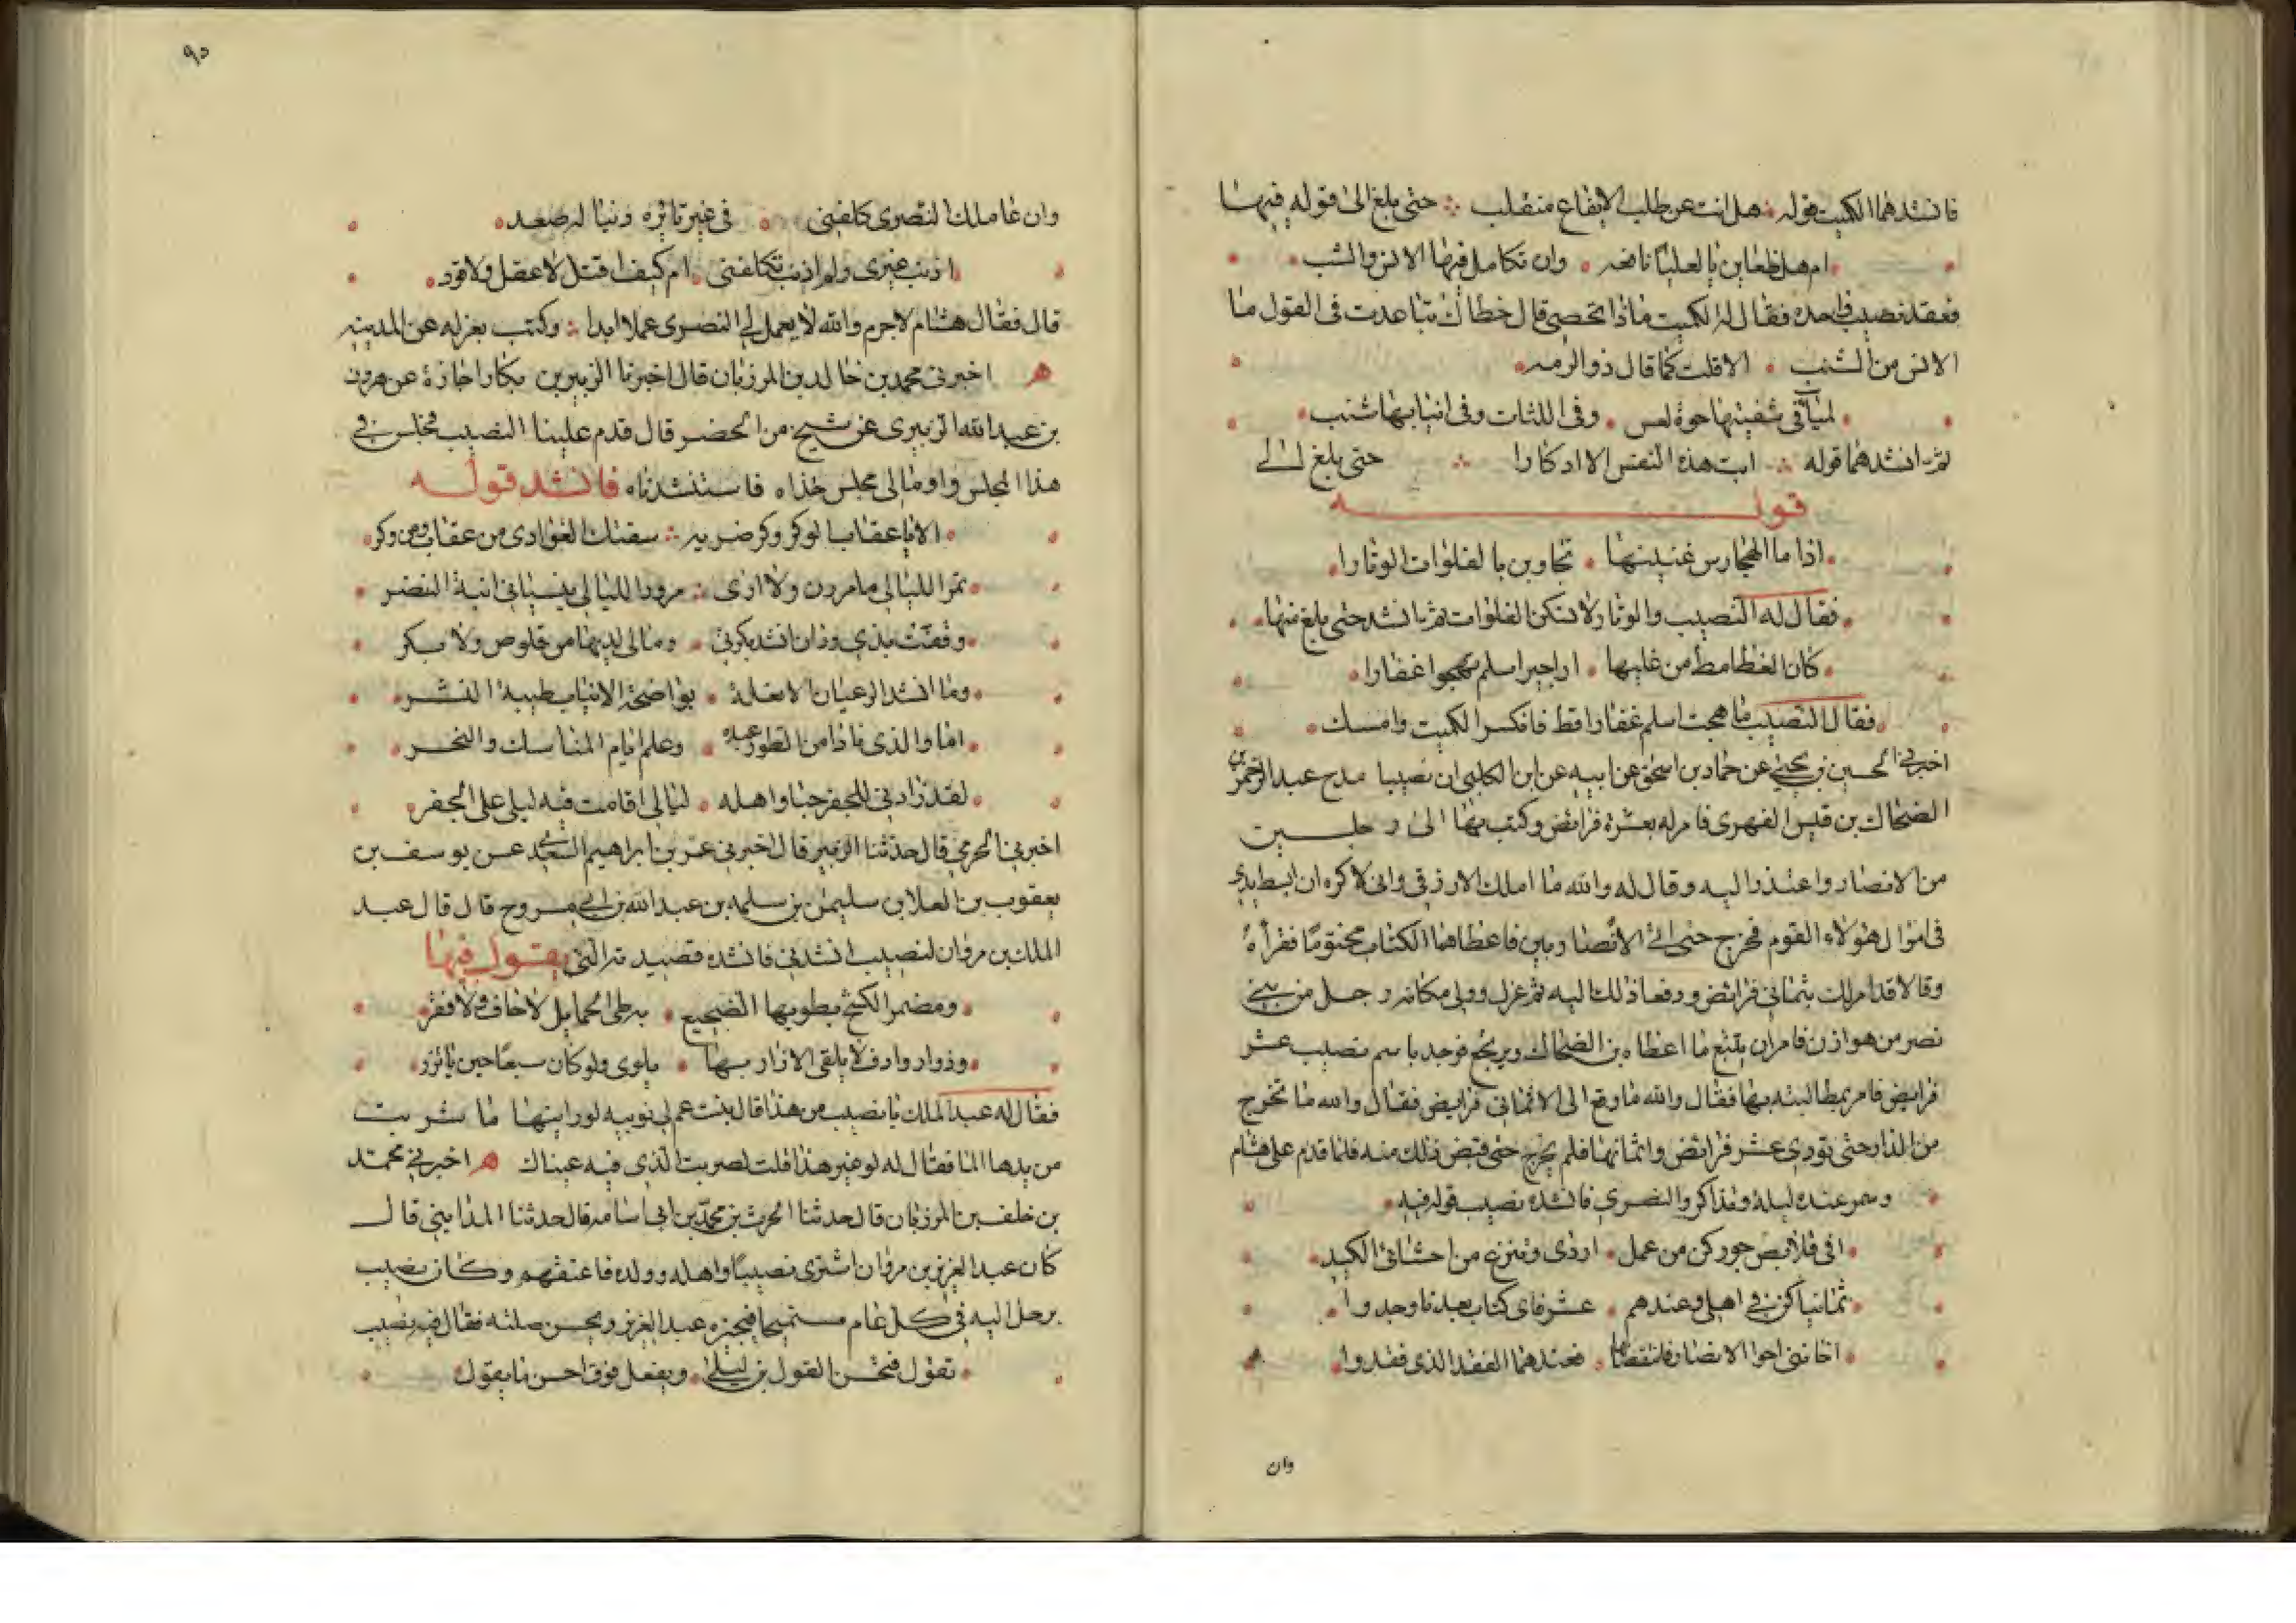 فانشدهما الكميت قوله هل انت عن طلب الايفاع منقلب حتى بلغ الى قوله فيها
ام هل ظعاين بالعلياء نافعه وان تكامل فيها الانس والشنب
فعقد نصيب واحده فقال له الكميت ماذا تحصي قال خطاك تباعدت في القول ما
الانس من الشنب الا قلت كما قال ذو الرمه
لمياء في شفتيها حوة لعس وفي اللثات وفي انيابها شنب
ثم انشدهما قوله ابت هذه النفس الا ادكارا حتى بلغ الى
قوله
اذا ما الهجارس غنينها تجاوبن بالفلوات الوبارا
فقال له النصيب والوبار لا تسكن الفلوات ثم انشد حتى بلغ منها
كان الغطامط من غليها اراجيز اسلم تهجوا غفارا
فقال النصيب ما هجت اسلم غفارا قط فانكسر الكميت وامسك
اخبرني الحسين بن يحيى عن حماد بن اسحق عن ابيه عن ابن الكلبي ان نصيبا مدح عبد الرحمن بن
الضحاك بن قيس الفهري فامر له بعشرة فرائض وكتب بها الى رجلين
من الانصار واعتذر اليه وقال له والله ما املك الا رزقي واني لاكره ان ابسط يدي
في اموال هؤلاء القوم فخرج حتى اتى الانصاريين فاعطاهما الكتاب مختوما فقرأه
وقالا قد امر لك بثماني فرائض ودفعا ذلك اليه ثم عزل وولي مكانه رجل من بني
نصر من هوازن فامر ان يتتبع ما اعطاه بن الضحاك ويرتجع فوجد باسم نصيب عشر
فرايض فامر بمطالبته بها فقال والله ما دفع الى الا ثماني فرايض فقال والله ما تخرج
من الدار حتى تودي عشر فرائض واثمانها فلم يخرج حتى قبض ذلك منه فلما قدم على هشام
وسمر عنده ليلة وتذاكروا النصري فانشده نصيب قوله فيه
افي قلايص جرر كن من عمل اردى وتنزع من احشائي الكبد
ثمانيا كن في اهلي وعندهم عشر فاي كتاب بعدنا وجدوا
اخانني اخوا الانصار فانتقصا فعندهما الفقد الذي فقدوا
وان
٩٥
وان عاملك النصري كلفني في غير نائرة دينا له صعد
اذنب غيري ولم اذنب تكلفني ام كيف اقتل لا عقل ولا قود
قال فقال هشام لا جرم والله لا يعمل لي النصري عملا ابدا وكتب بعزله عن المدينه
ه اخبرني محمد بن خالد بن المرزبان قال اخبرنا الزبير بن بكار اجازة عن هرون
بن عبد الله الزبيري عن شيخ من الحضر قال قدم علينا النصيب فجلس في
هذا المجلس واومأ الى مجلس حذاه فاستنشدناه فانشد قوله
الا يا عقاب الوكر وكر ضريه سقتك الغوادي من عقاب ومن وكر
تمر الليالي ما مررن ولا ارى مرور الليالي ينسياني ابنة النضر
وقفت بذي دوران انشد بكرتي ومالي لديها من قلوص ولا بكر
وما انشد الرعيان الا تعلة بواضحة الانياب طيبة النشر
اما والذي نادى من الطور عبده وعلم ايام المناسك والنحر
لقد زادني للجفر حبا واهله ليالي اقامت فيه ليلى على الجفر
اخبرني الحرمي قال حدثنا الزبير قال اخبرني عمر بن ابراهيم السعدي عن يوسف بن
يعقوب بن العلا بن سليمن بن سلمه بن عبد الله بن ابي مسروح قال قال عبد
الملك بن مروان لنصيب انشدني فانشده قصيدته التي يقول فيها
ومضمر الكشح يطويها الضجيع به طي الحمايل لا جاف ولا فقر
وذو روادف لا يلقى الازار بها يلوى ولو كان سبعا حين ياتزر
فقال له عبد الملك يا نصيب من هذا قال بنت عم لي نوبيه لو رايتها ما شربت
من يدها الما فقال له لو غير هذا قلت لضربت الذي فيه عيناك ه اخبرني محمد
بن خلف بن المرزبان قال حدثنا الحرث بن محمد بن ابي اسامه قال حدثنا المدايني قال
كان عبد العزيز بن مروان اشترى نصيبا واهله وولده فاعتقهم وكان نصيب
يرحل اليه في كل عام مستميحا فيجيزه عبد العزيز ويحسن صلته فقال فيه نصيب
تقول فتحسن القول بن ليلى ويفعل فوق احسن ما يقول